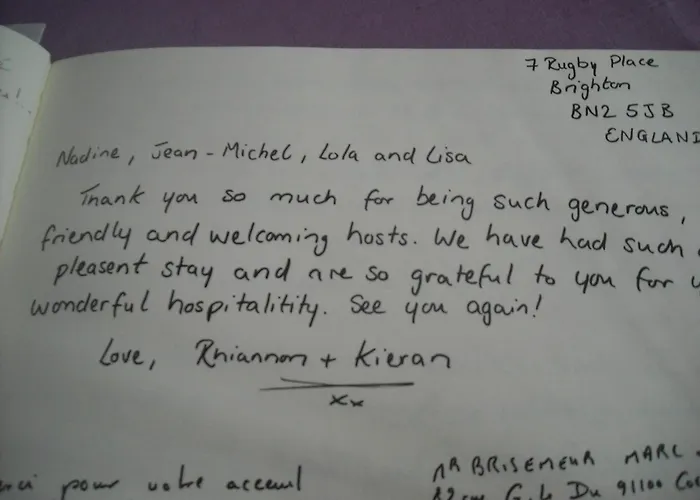 7 Rugby Place
Brighton
BN2 5JB
ENGLAND
Nadine, Jean-Michel, Lola and Lisa
Thank you so much for being such generous,
friendly and welcoming hosts. We have had such a
pleasent stay and are so grateful to you for
wonderful hospitalitity. See you again!
Love, Rhiannon + Kieran
xx
pour votre accueil
MR BRISEMEUR MARC
Du 91100